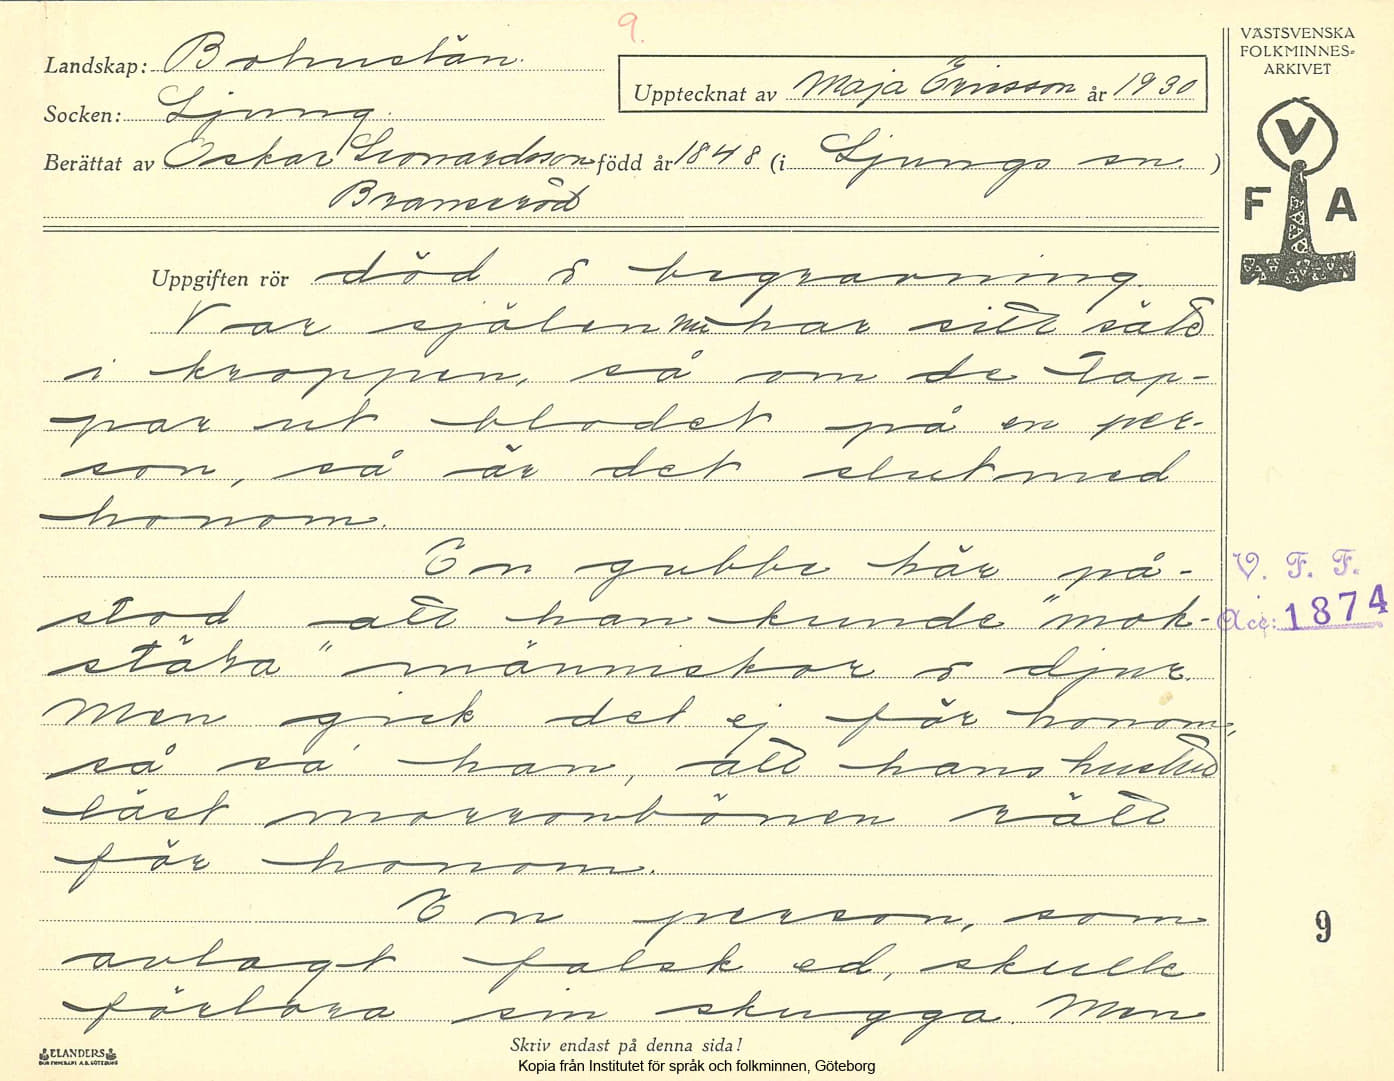 9.
Landskap: Bohuslän
VÄSTSVENSKA
FOLKMINNES-
ARKIVET
Upptecknat av Maja Ericsson år 1930
Socken: Ljung
Berättat av Oskar Leonardsson född år 1848 (i Ljungs sn. )
Bramseröd
V
F A
Uppgiften rör död & begravning.
Var själen nu har sitt säte
i kroppen, så om de tap-
par ut blodet på en per-
son, så är det slut med
honom.
En gubbe här på-
stod att han kunde "mok-
stära" människor & djur.
Men gick det ej för honom,
så sa' han, att hans hustru
läst morronbönen rätt
för honom.
En person, som
avlagt falsk ed, skulle
förlora sin skugga. Men
V. F. F.
Acc: 1874
9
Skriv endast på denna sida!
ELANDERS
Kopia från Institutet för språk och folkminnen, Göteborg